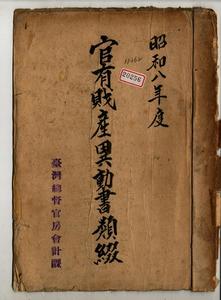 昭和八年度
官有財産異動書類綴
20256
臺灣總督官房會計課